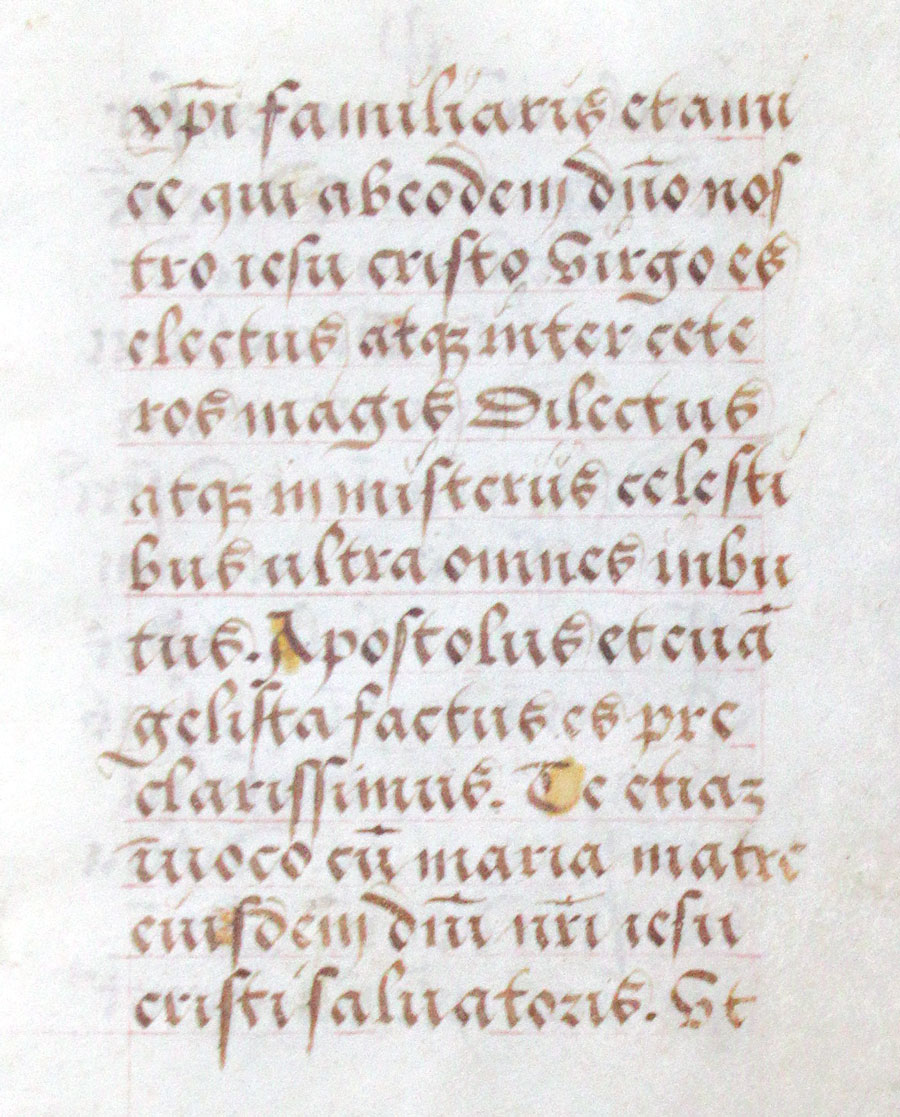 xp̄i familiaris et ami
ce qui ab eodem dn̄o nos
tro iesu cristo Virgo es
electus atqꝫ inter cete
ros magis Dilectus
atqꝫ in misteriis celesti
bus ultra omnes inbu
tus. Apostolus et euā
gelista factus es pre
clarissimus. Te etiaz
īuoco cū maria matre
eiusdem dn̄i nr̄i iesu
cristi saluatoris. Vt